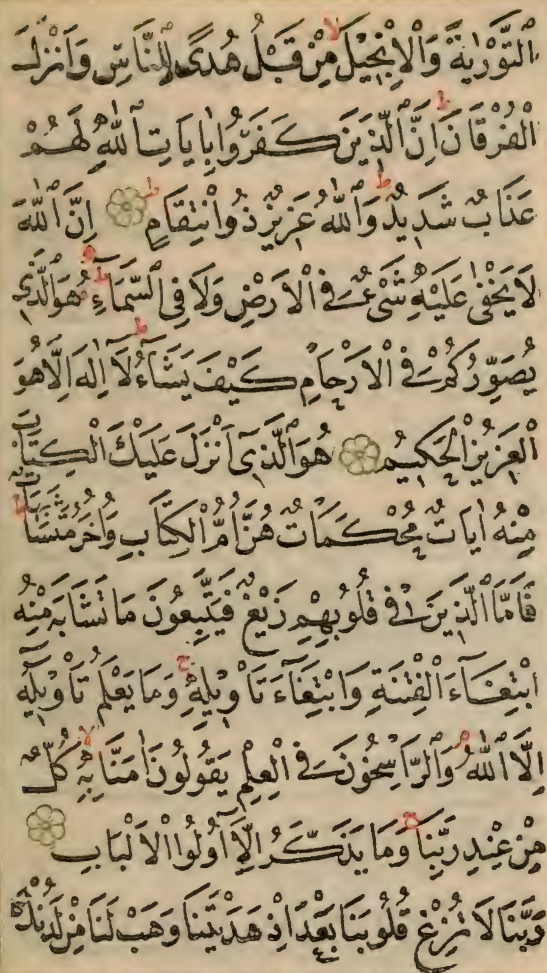 التَّوْرٰيةَ وَالْاِنْجٖيلَ مِنْ قَبْلُ هُدًى لِلنَّاسِ وَاَنْزَلَ
الْفُرْقَانَ اِنَّ الَّذٖينَ كَفَرُوا بِاٰيَاتِ اللّٰهِ لَهُمْ
عَذَابٌ شَدٖيدٌ وَاللّٰهُ عَزٖيزٌ ذُو انْتِقَامٍ اِنَّ اللّٰهَ
لَا يَخْفٰى عَلَيْهِ شَيْءٌ فِي الْاَرْضِ وَلَا فِي السَّمَاءِ هُوَ الَّذٖي
يُصَوِّرُكُمْ فِي الْاَرْحَامِ كَيْفَ يَشَاءُ لَا اِلٰهَ اِلَّا هُوَ
الْعَزٖيزُ الْحَكٖيمُ هُوَ الَّذٖي اَنْزَلَ عَلَيْكَ الْكِتَابَ
مِنْهُ اٰيَاتٌ مُحْكَمَاتٌ هُنَّ اُمُّ الْكِتَابِ وَاُخَرُ مُتَشَابِهَاتٌ
فَاَمَّا الَّذٖينَ فٖي قُلُوبِهِمْ زَيْغٌ فَيَتَّبِعُونَ مَا تَشَابَهَ مِنْهُ
ابْتِغَاءَ الْفِتْنَةِ وَابْتِغَاءَ تَاْوٖيلِهٖ وَمَا يَعْلَمُ تَاْوٖيلَهُ
اِلَّا اللّٰهُ وَالرَّاسِخُونَ فِي الْعِلْمِ يَقُولُونَ اٰمَنَّا بِهٖ كُلٌّ
مِنْ عِنْدِ رَبِّنَا وَمَا يَذَّكَّرُ اِلَّا اُولُوا الْاَلْبَابِ
رَبَّنَا لَا تُزِغْ قُلُوبَنَا بَعْدَ اِذْ هَدَيْتَنَا وَهَبْ لَنَا مِنْ لَدُنْكَ